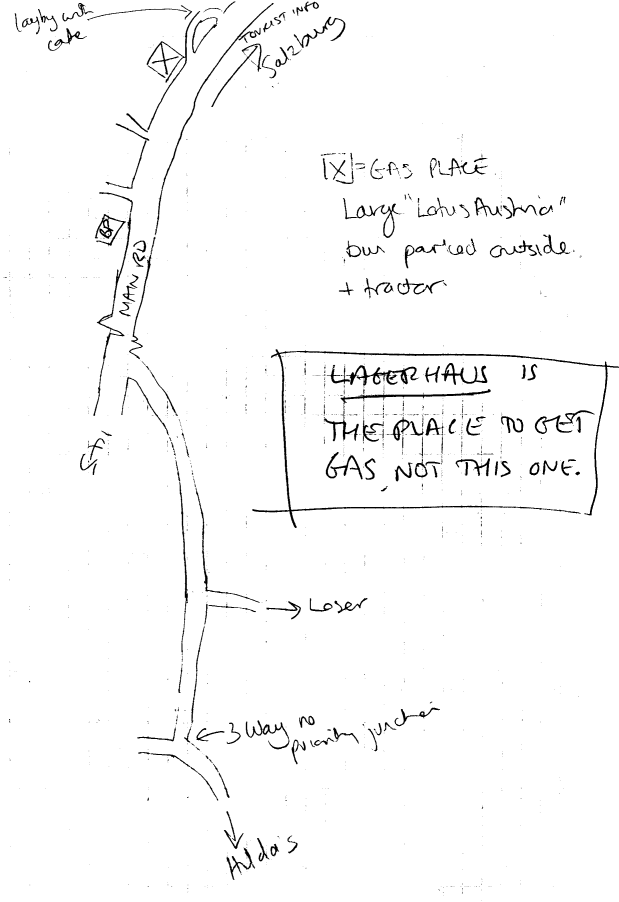 layby with
cafe
TOURIST INFO
Salzburg
X
X = GAS PLACE
Large "Lotus Austria"
bus parked outside.
+ tractor
BP
MAIN RD
LAGERHAUS IS
THE PLACE TO GET
GAS, NOT THIS ONE.
Loser
3 Way no
priority junction
Hilda's